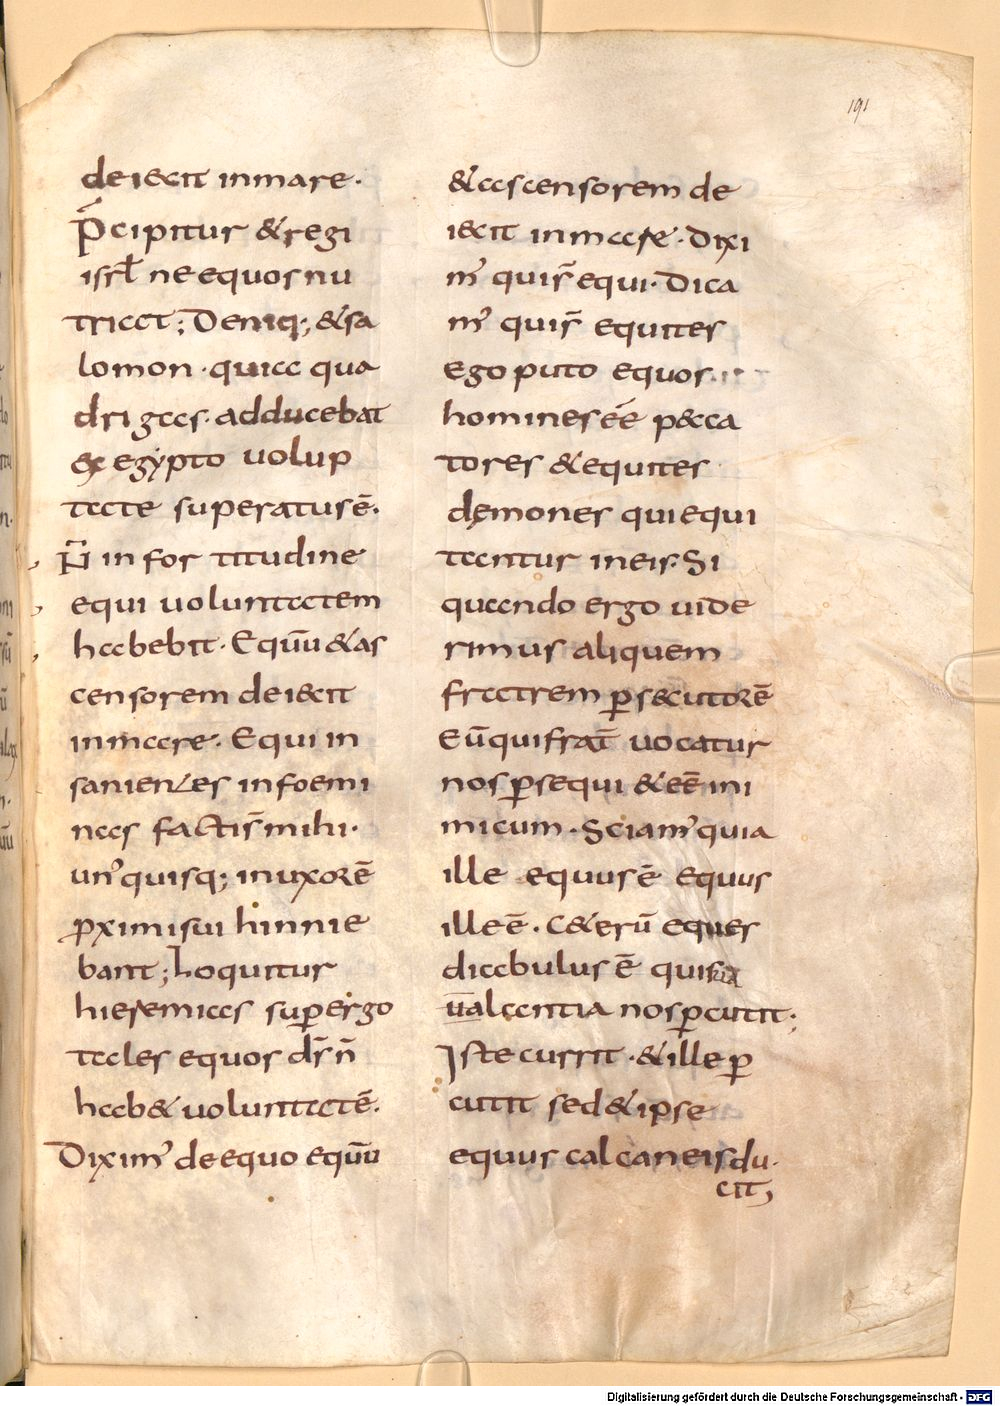 191
deiecit inmare.
P̄cipitur & regi
isrł ne equos nu
triat; Deniq; & sa
lomon . quia qua
drigas . adducebat
ex egypto uolup
tate superatus ē.
N̄ in fortitudine
equi uoluntatem
habebit . Equū & as
censorem deiecit
inmare. Equi in
sanientes infoemi
nas factis̄ mihi .
un'quisq; inuxorē
p̱ximisui hinnie
bant; Loquitur
hieremias sup̱ ergo
tales equos dr̄s n̄
hab& uoluntatē.
Dixim' deequo equū
& ascensorem de
iecit inmare . Dixi
m' quis̄ equi . Dica
m' quis̄ equites
ego puto equos .
homines eē p&cca
tores & equites
dęmones quiequi
tantur ineis . Si
quando ergo uide
rimus aliquem
fratrem p̱secutorē
Eū qui frat̄ uocatur
nos p̱sequi & eē ini
micum . Sciam' quia
ille equus ē equus
ille ē . C&erū eques
diabulus ē quis
ualentia nos p̱cutit;
Iste currit . & ille p̱
cutit sed & ipse
equus calcaneis du
cit,
Digitalisierung gefördert durch die Deutsche Forschungsgemeinschaft - DFG